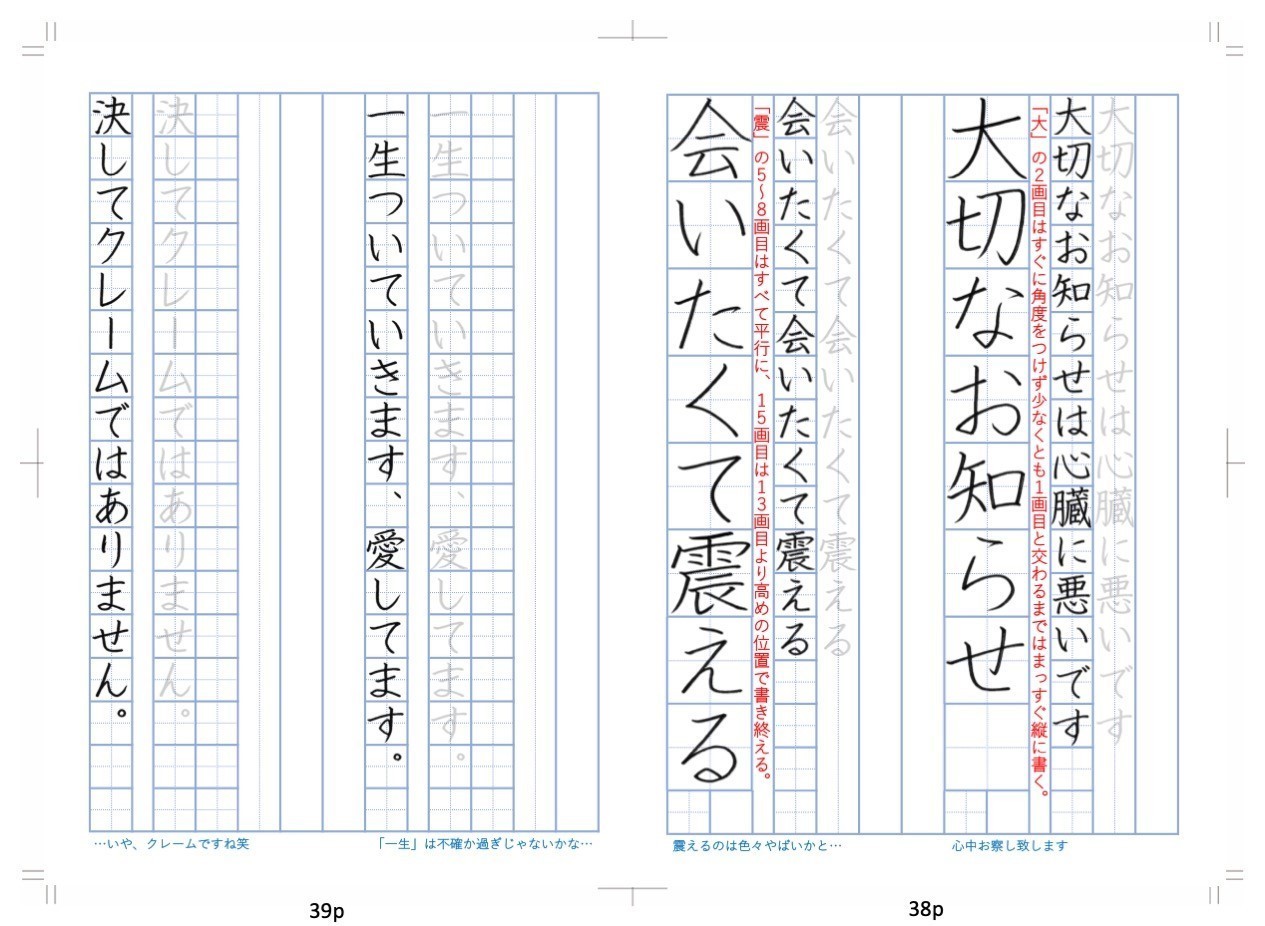 大切なお知らせは心臓に悪いです
大切なお知らせは心臓に悪いです
「大」の2画目はすぐに角度をつけず少なくとも1画目と交わるまではまっすぐ縦に書く。
大切なお知らせ
心中お察し致します
会いたくて会いたくて震える
会いたくて会いたくて震える
「震」の5〜8画目はすべて平行に、15画目は13画目より高めの位置で書き終える。
会いたくて震える
震えるのは色々やばいかと…
38p
一生ついていきます、愛してます。
一生ついていきます、愛してます。
「一生」は不確か過ぎじゃないかな…
決してクレームではありません。
決してクレームではありません。
…いや、クレームですね笑
39p